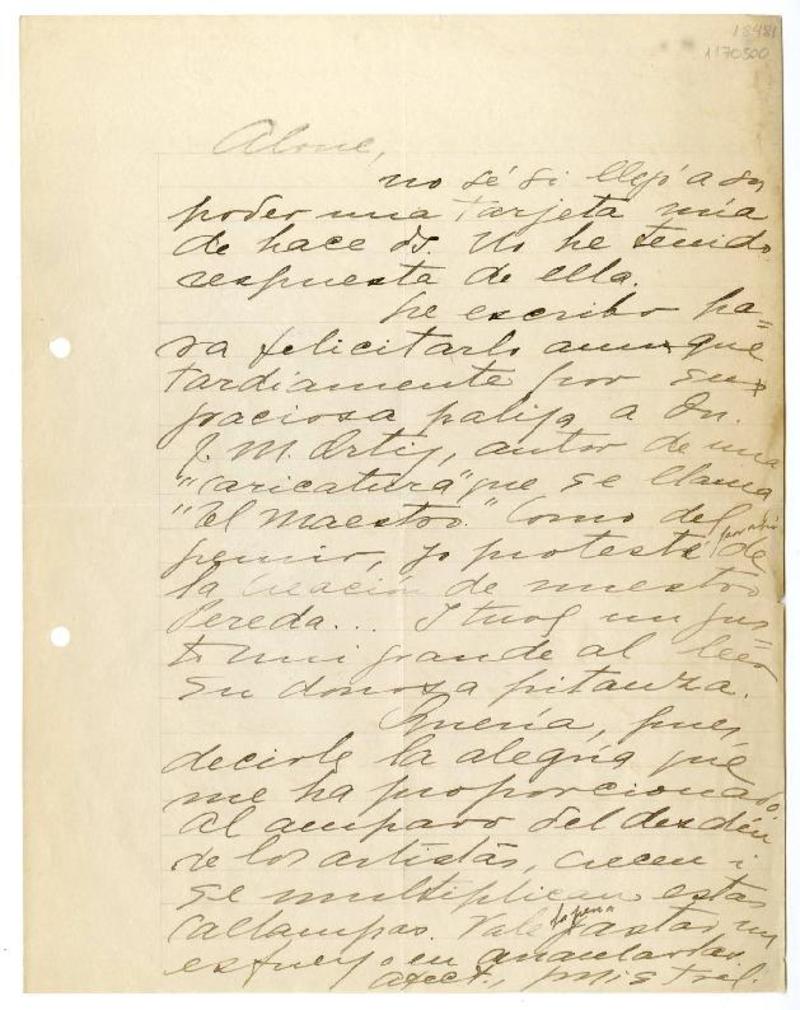 18481
1170500
Alone,
no sé si llegó a su
poder una tarjeta mía
de hace ds. No he tenido
respuesta de ella.
Le escribo pa=
ra felicitarlo aunque
tardíamente por su
graciosa paliza a Dn.
J. M. Ortiz, autor de una
"caricatura" que se llama
"El Maestro." Como del
gremio, yo protesté de
la creación de nuestro
Pereda... I tuve un gus=
to mui grande al leer
su donosa pitanza.
Quería, pues,
decirle la alegría que
me ha proporcionado
Al amparo del desdén
de los artistas, crecen i
se multiplican estas
callampas. Vale la pena gastar un
esfuerzo en
afect., Mistral.